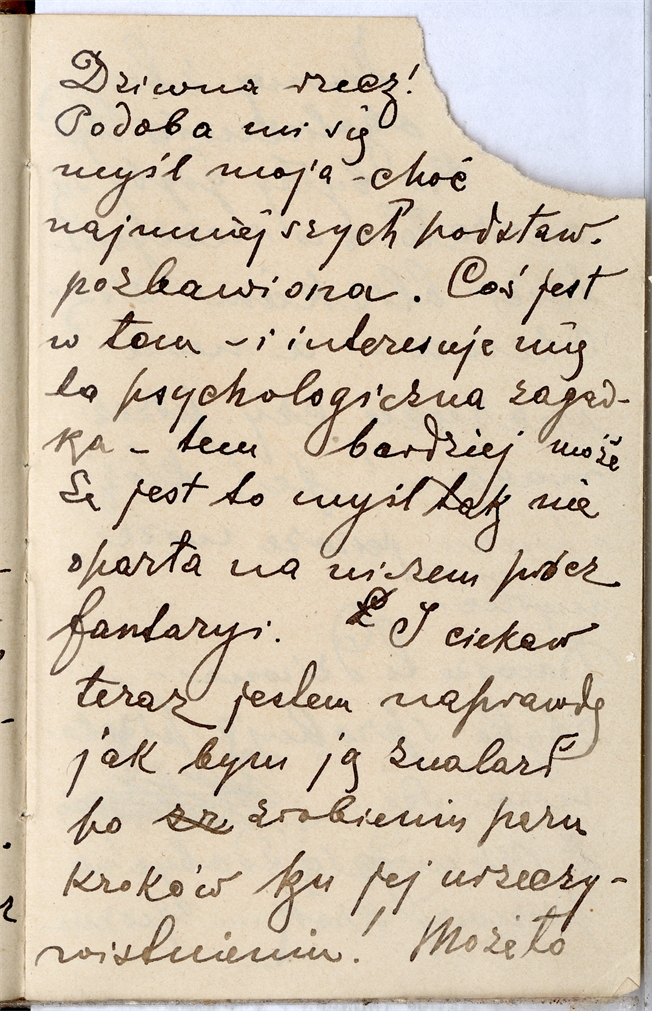 Dziwna rzecz!
Podoba mi się
myśl moja - choć
najmniejszych podstaw.
pozbawiona. Coś jest
w tem - i interesuje mię
ta psychologiczna zagad-
ka - tem bardziej może
że jest to myśl tak nie
oparta na niczem prócz
fantazyi. I ciekaw
teraz jestem naprawdę
jak bym ją znalazł
po zr zrobieniu paru
kroków ku jej urzeczy-
wistnieniu! Może to